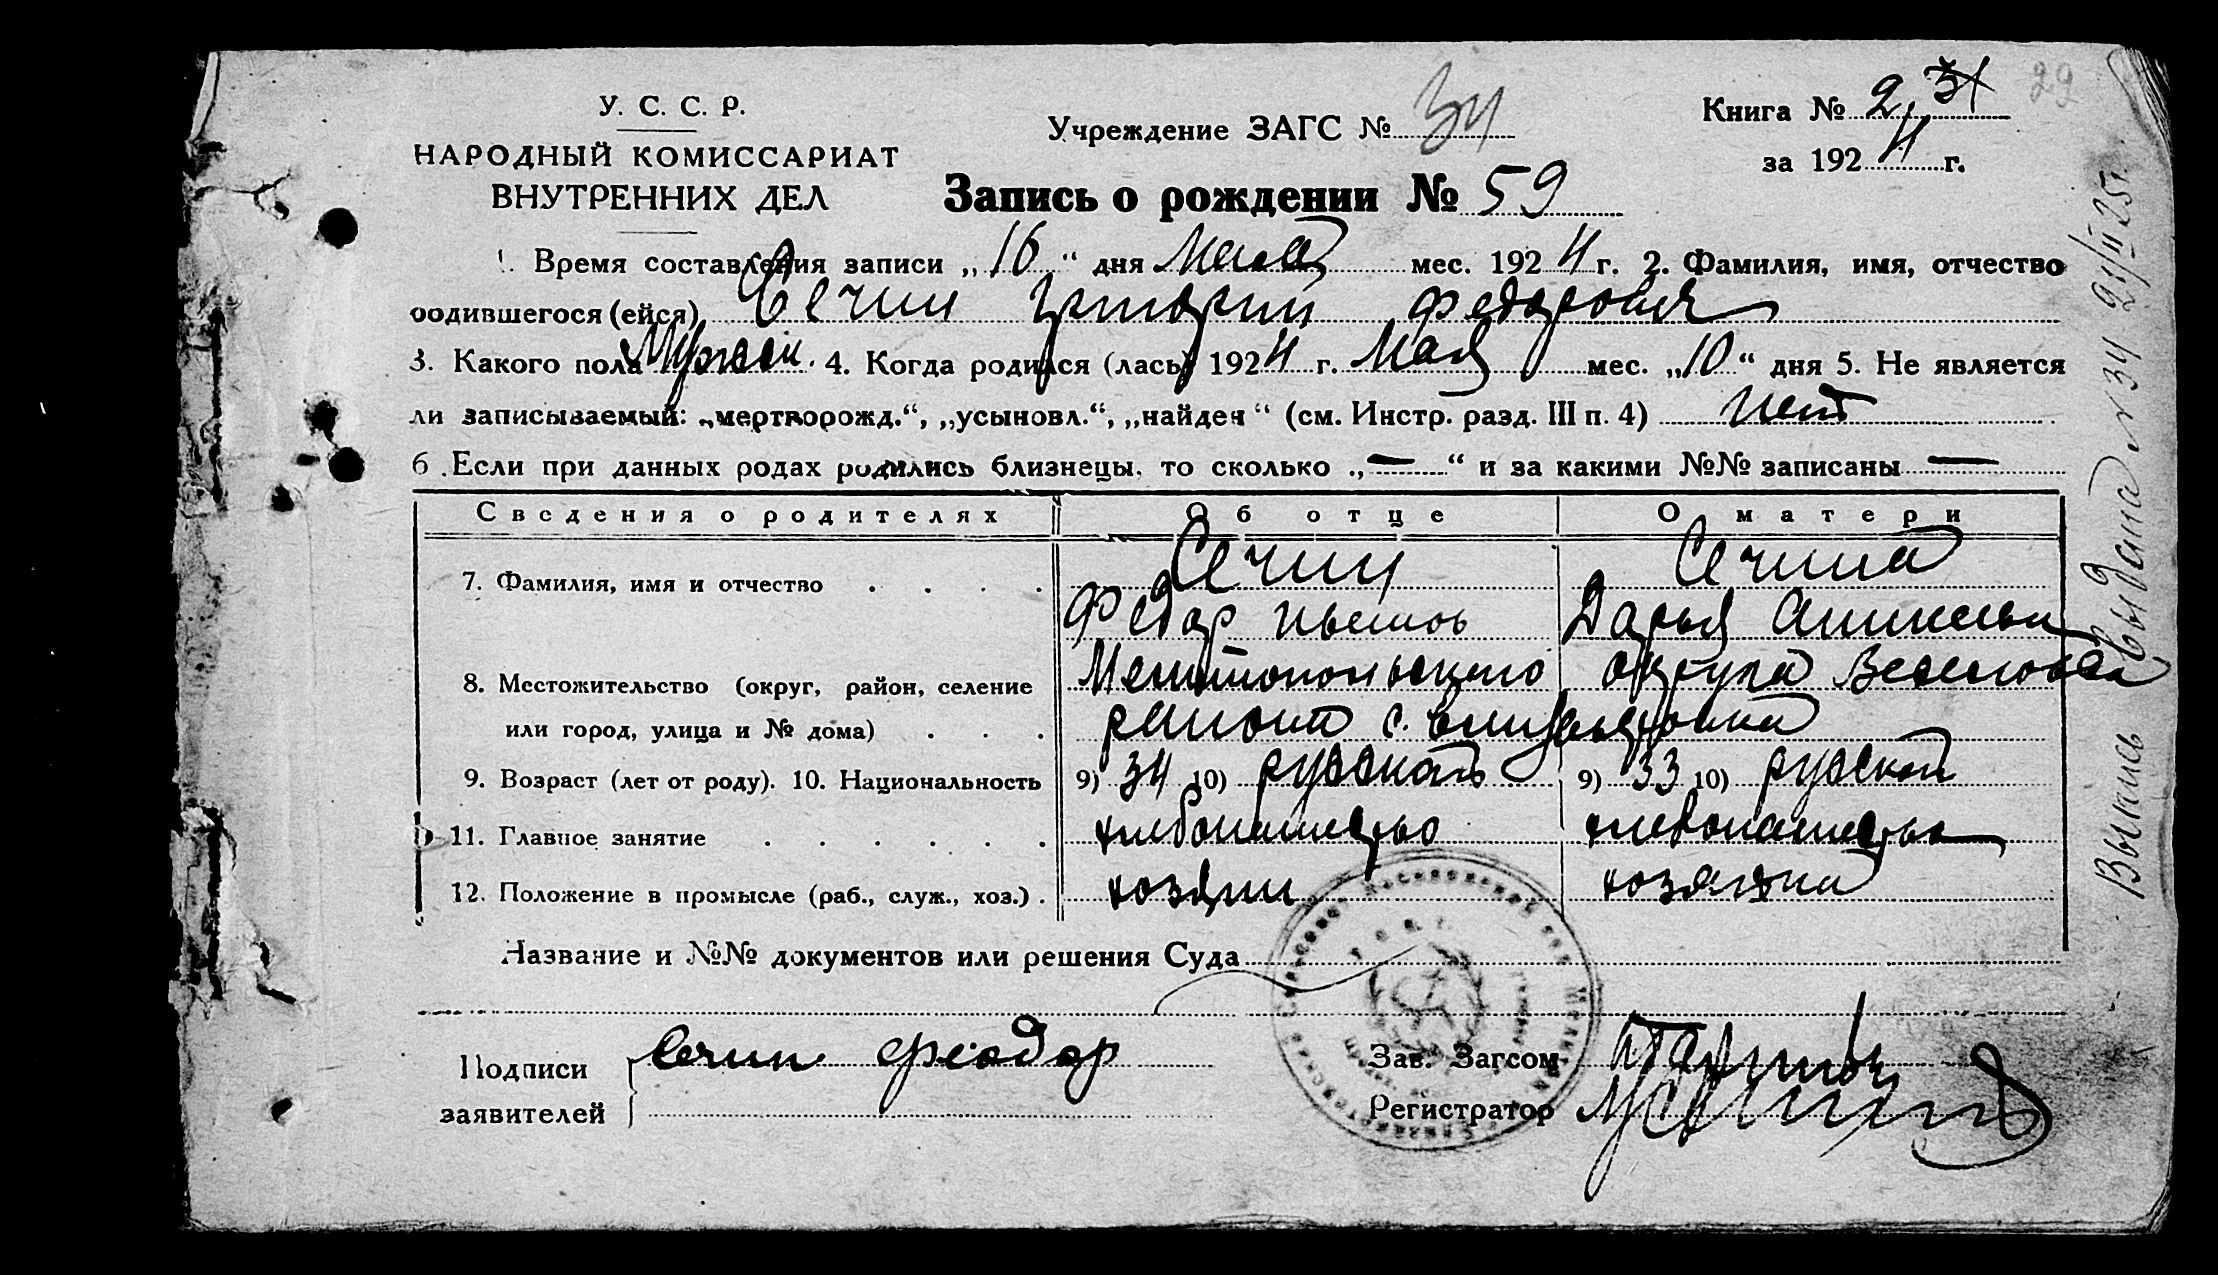 У. С. С. Р.
НАРОДНЫЙ КОМИССАРИАТ
ВНУТРЕННИХ ДЕЛ
Учреждение ЗАГС № 34
Книга № 2, 31
29
за 1924 г.
Запись о рождении № 59
1. Время составления записи „16“ дня Мая мес. 1924 г. 2. Фамилия, имя, отчество
родившегося (ейся) Сечин Григорий Федорович
3. Какого пола Мужск. 4. Когда родился (лась) 1924 г. Мая мес. „10“ дня 5. Не является
ли записываемый: „мертворожд.“, „усыновл.“, „найден“ (см. Инстр. разд. III п. 4) нет
6. Если при данных родах родились близнецы, то сколько „—“ и за какими №№ записаны —
Сведения о родителях Об отце О матери
7. Фамилия, имя и отчество . . . . Сечин Сечина
Федор Дарья
8. Местожительство (округ, район, селение Мелитопольского округа
или город, улица и № дома) . . . района с.
9. Возраст (лет от роду). 10. Национальность 9) 34 10) русской 9) 33 10) русской
11. Главное занятие . . . . . . хлебопашество хлебопашество
12. Положение в промысле (раб., служ., хоз.) . хозяин хозяйка
Название и №№ документов или решения Суда
Подписи заявителей Сечин Феодор
Зав. Загсом
Регистратор
Выпись выдана № 34 21/II 25 г.